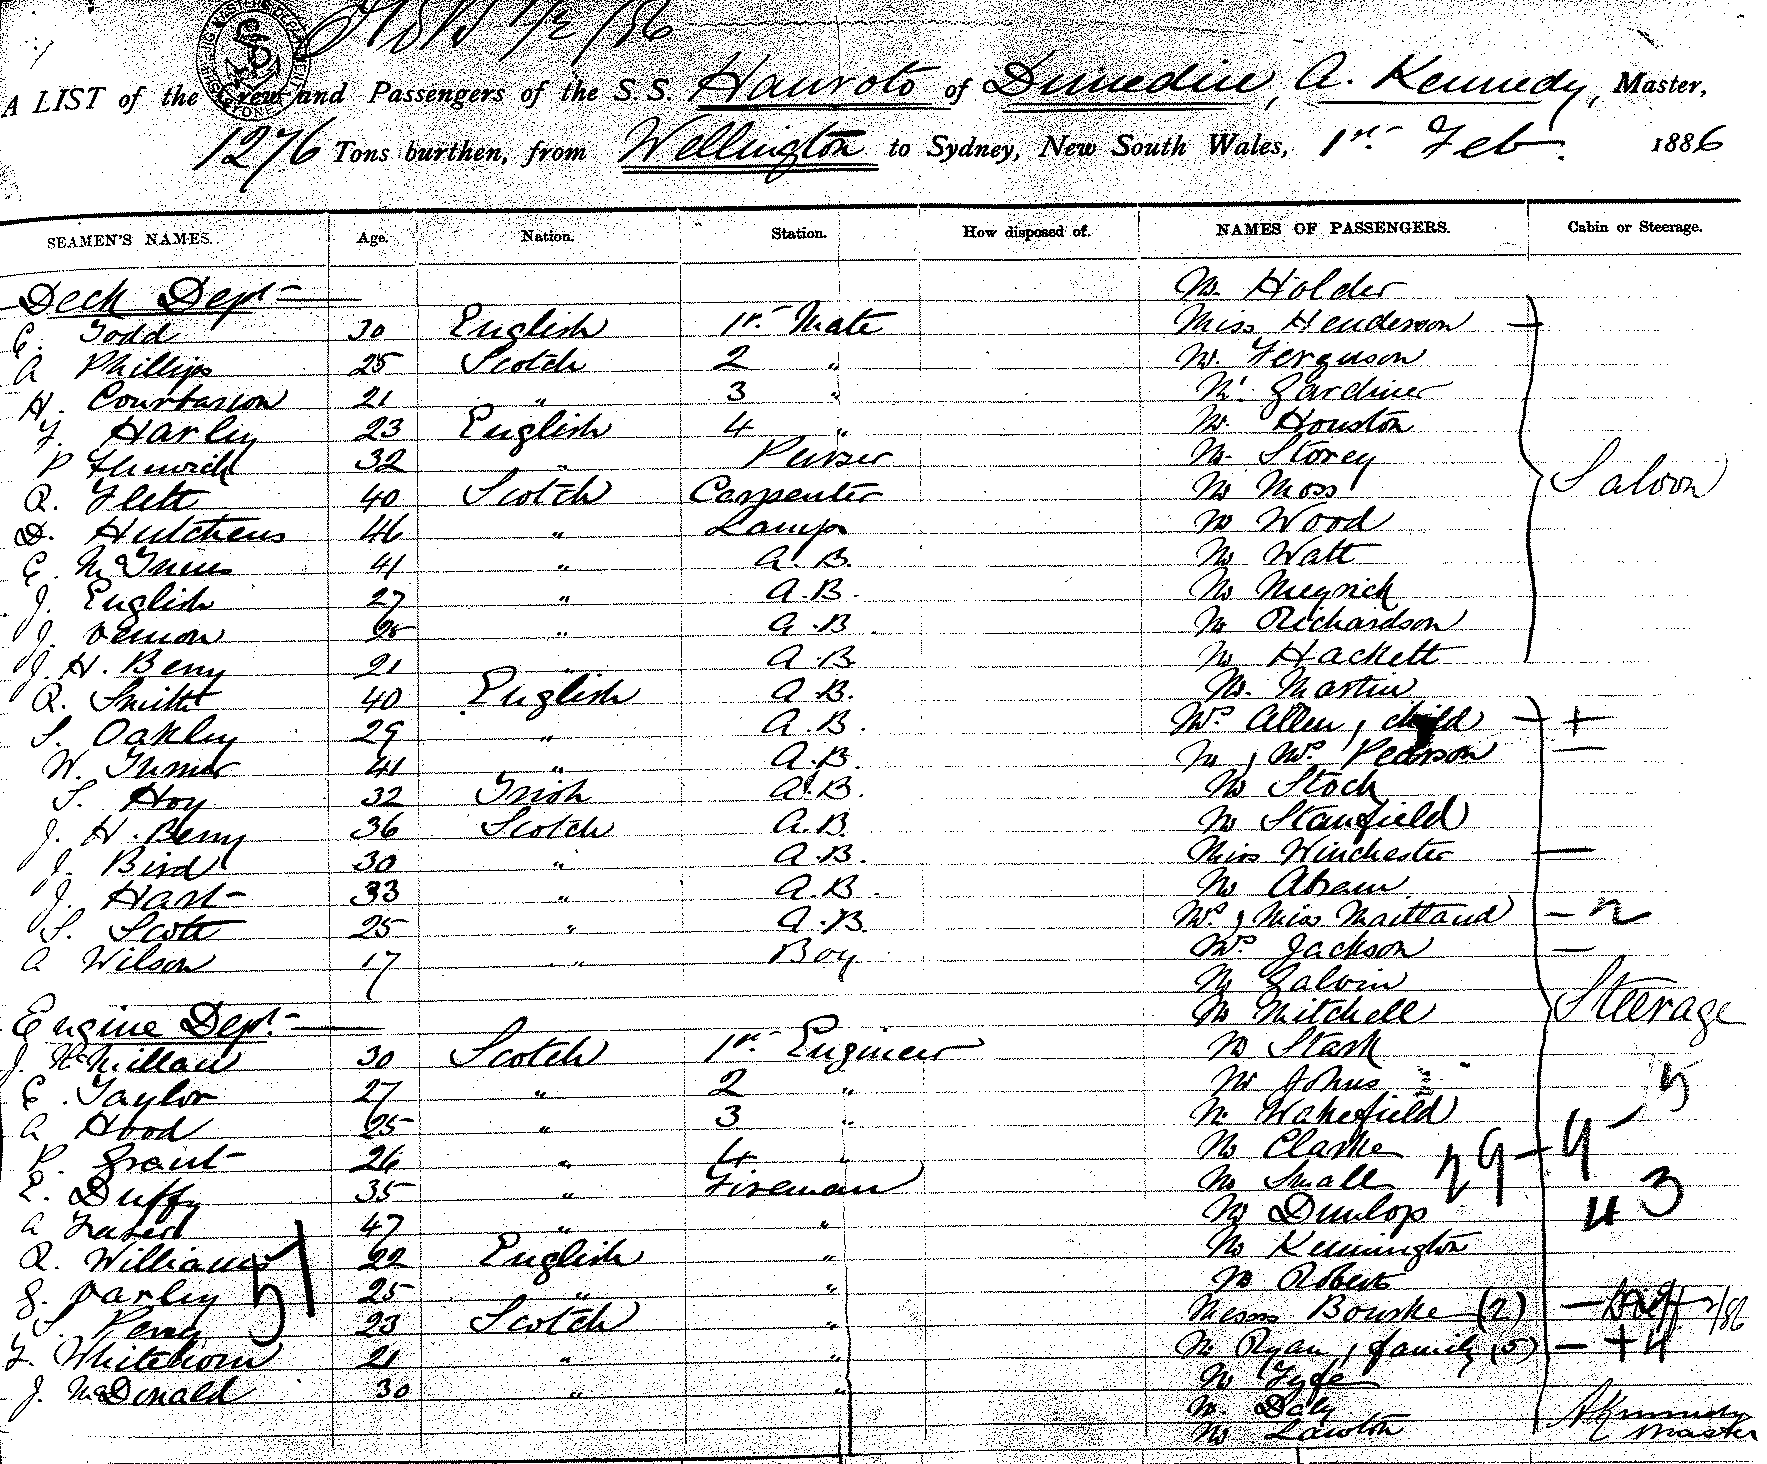 A LIST of the Crew and Passengers of the S.S. Hauroto of Dunedin, A. Kennedy, Master,
1276 Tons burthen, from Wellington to Sydney, New South Wales, 1st Feb. 1886
SEAMEN'S NAMES. Age. Nation. Station. How disposed of. NAMES OF PASSENGERS. Cabin or Steerage.
Deck Dept Mr. Holder
E. Todd 30 English 1st Mate Miss Henderson
A Phillips 25 Scotch 2 " Mr. Ferguson
H. 21 " 3 " Mr. Gardiner
F. Harley 23 English 4 " Mr Houston
P Fenwick 32 " Purser Mr. Storey
R. Flett 40 Scotch Carpenter Mr Moss Saloon
D. Hutchens 46 " Lamps Mr Wood
E. 41 " A.B. Mr Watt
J. English 27 " A.B. Mr Meyrick
J. Vernon " A.B. Mr Richardson
J. H. Berry 21 " A.B Mr Hackett
R. Smith 40 English A.B. Mr. Martin
S. Oakley 29 " A.B. Mrs Allen, child +
W. Turner 41 " A.B. Mr, Mrs Pearson
S. Hoy 32 Irish A.B. Mr Stock
J. H. Berry 36 Scotch A.B. Mr Stanfield
J. Bird 30 " A.B. Miss Winchester
J. Hart 33 " A.B. Mr Abram
S. Scott 25 " A.B. Mrs, Miss Maitland - 2
A Wilson 17 " Boy Mrs Jackson
Mr Galvin
Engine Dept. Mr Mitchell Steerage
J. McMillan 30 Scotch 1st Engineer Mr Stark
E. Taylor 27 " 2 " Mr Johns 5
A. Hood 25 " 3 " Mr Wakefield
P. Grant 26 " 4 " Mr Clarke 29
E. Duffy 35 " Fireman Mr Small
A Fraser 47 " " Mr Dunlop 43
R. Williams 22 English " Mr Kennington
G. Varley 25 " " Mr Robert
S. Perry 23 Scotch " Messrs Bourke (2)
F. Whitehorn 21 " " Mr Ryan, family (5) - + 4
J. McDonald 30 " " Mr Fyfe
Mr. Daly
Mr Lawton
51
AKennedy
Master